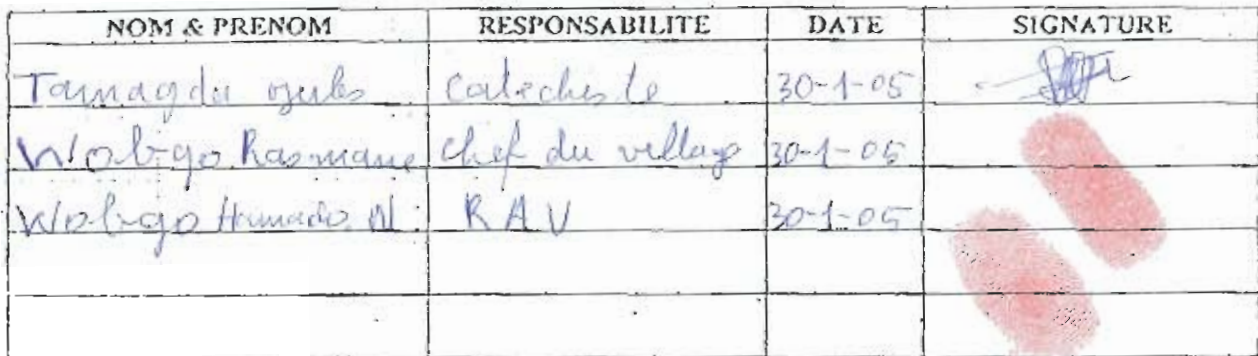 NOM & PRENOM RESPONSABILITE DATE SIGNATURE
Tamagda Catechiste 30-1-05
Wobgo Rasmane Chef du village 30-1-05
Wobgo Hamado N. RAV 30-1-05